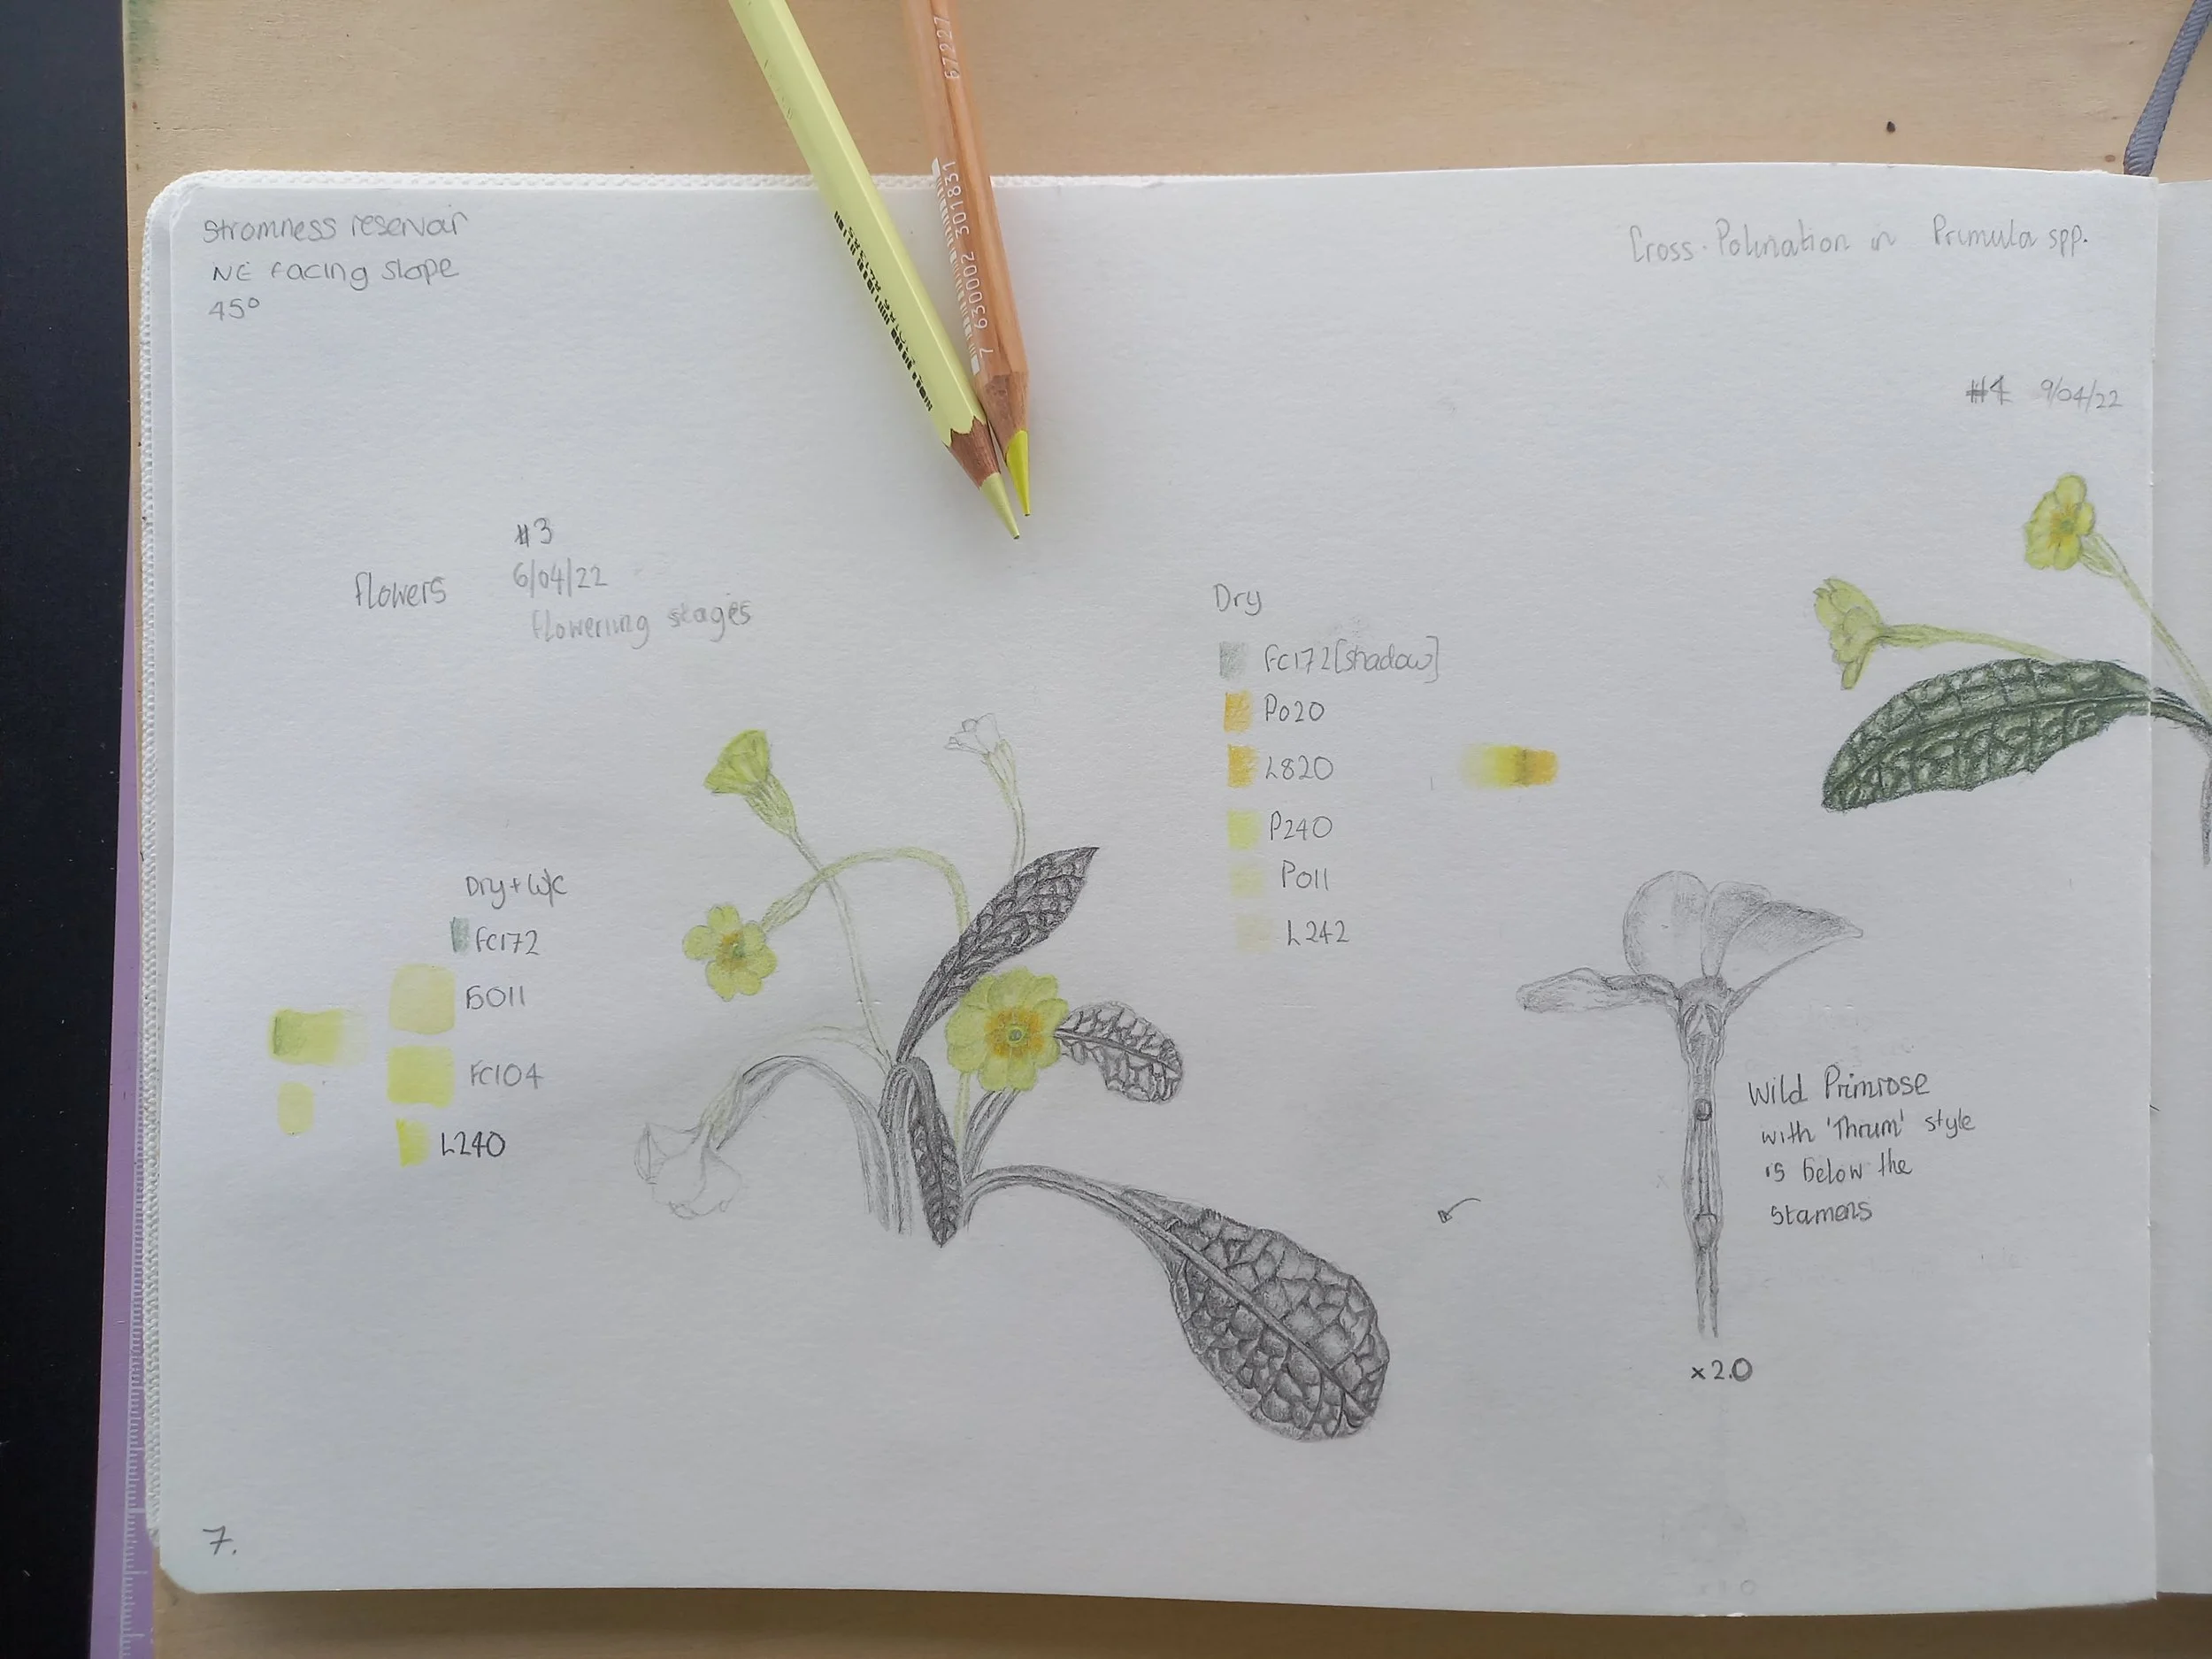 Stromness reservoir
NE facing slope
45°
Cross-Polination in Primula spp.
#4 9/04/22
#3
6/04/22
flowers
flowering stages
Dry
FC172[shadow]
P020
L820
P240
P011
L242
Dry + W/C
FC172
FC104
L240
Wild Primrose
with 'Thrum' style
is below the
stamens
x 2.0
7.
67227
7 630002 301831